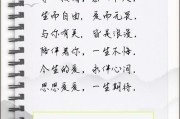 生而自由，爱而无畏。
与你有关，皆是浪漫。
陪伴着你，一生不悔。
今生的爱，永伴心间。
思思爱爱，一生期待。